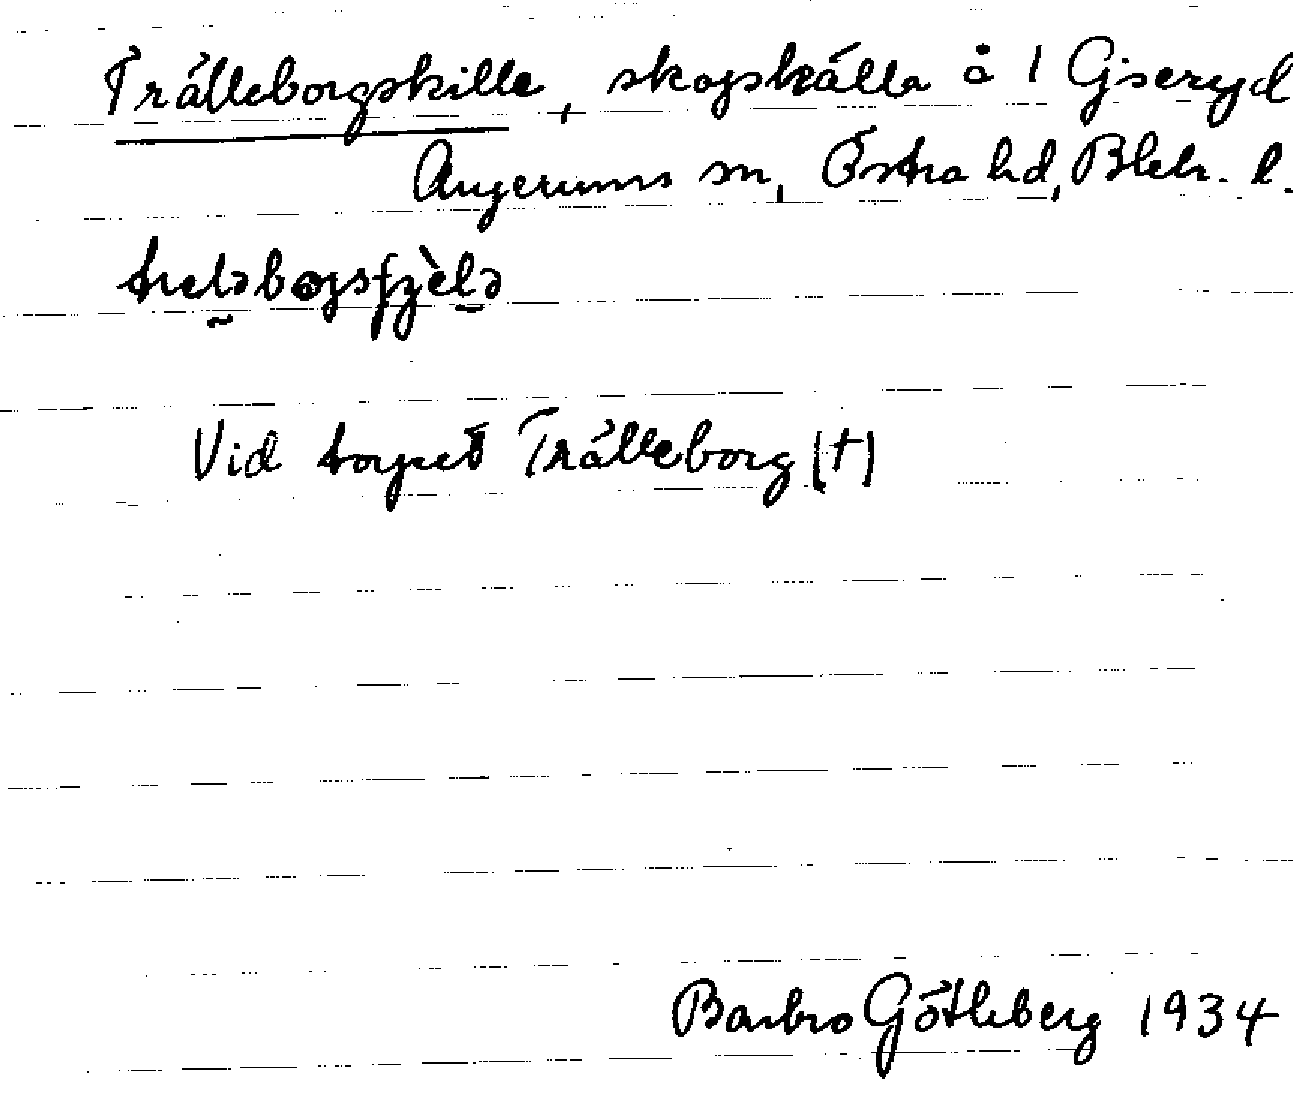 Trälleborgskille, skogskälla å 1 Gjseryd
Augerums sn, Östra hd, Blek. l.
Vid torpet Trälleborg (†)
Barbro Götleberg 1934